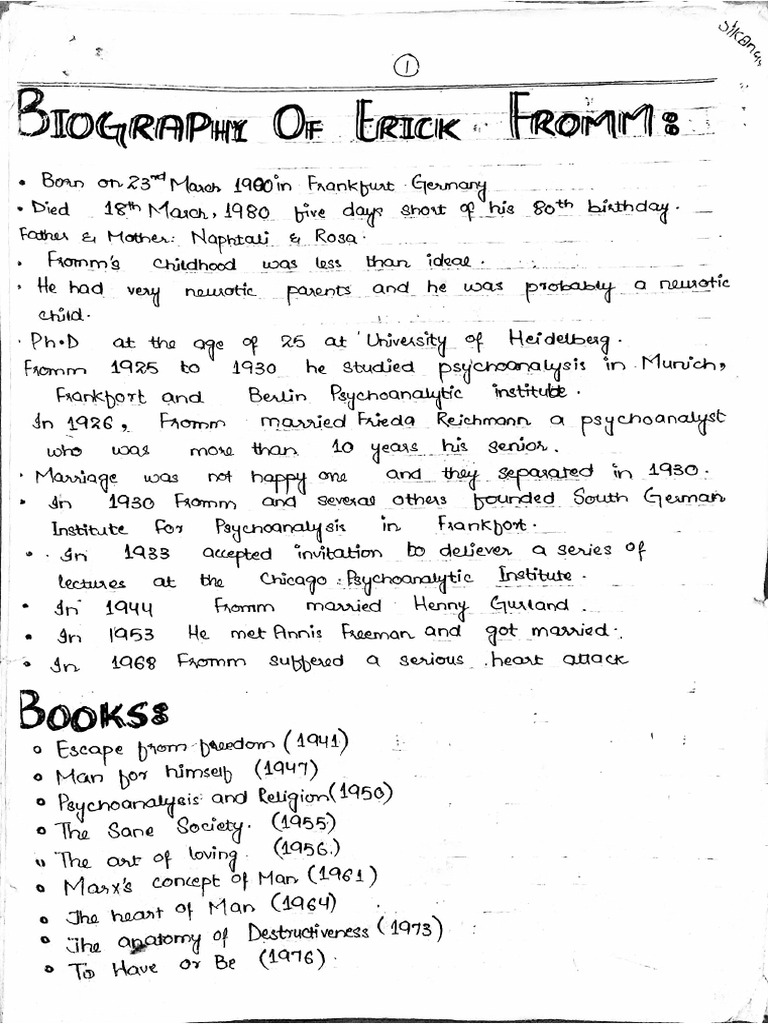 Sikand
1
BIOGRAPHY OF ERICK FROMM:
• Born on 23rd March 1900 in Frankfurt Germany
• Died 18th March, 1980 five days short of his 80th birthday.
Father & Mother: Naphtali & Rosa.
• Fromm's childhood was less than ideal.
• He had very neurotic parents and he was probably a neurotic
child.
• Ph.D at the age of 25 at University of Heidelberg.
From 1925 to 1930 he studied psychoanalysis in Munich,
Frankfort and Berlin Psychoanalytic institute.
In 1926, Fromm married Frieda Reichmann a psychoanalyst
who was more than 10 years his senior.
• Marriage was not happy one and they separated in 1930.
• In 1930 Fromm and several others founded South German
Institute for Psychoanalysis in Frankfort.
• In 1933 accepted invitation to deliever a series of
lectures at the Chicago Psychoanalytic Institute.
• In 1944 Fromm married Henny Gurland.
• In 1953 He met Annis Freeman and got married.
• In 1968 Fromm suffered a serious heart attack
BOOKS:
• Escape from freedom (1941)
• Man for himself (1947)
• Psychoanalysis and Religion (1950)
• The Sane Society. (1955)
• The art of loving. (1956)
• Marx's concept of Man (1961)
• The heart of Man (1964)
• The anatomy of Destructiveness (1973)
• To Have or Be (1976).